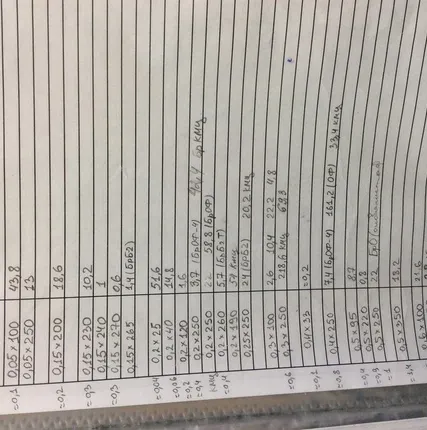 =0,1 0,05×100 43,8
0,05×250 13
=0,2 0,15×200 18,6
=0,3 0,15×230 10,2
0,15×240 1
=0,3 0,15×270 0,6
0,15×265 1,4 (БрБ2)
=0,04 0,2×25 51,6
=0,06 0,2×40 14,8
=0,2 0,2×120 1,6
=0,4 0,2×250 8,7
0,2×250 58,8 (БрОФ)
0,2×260 5,7 (БрБ2Т)
0,2×190 57 кмц
0,25×250 24 (БрБ2) 20,2 кмц
0,3×100 2,6 10,4 22,2 4,8
=0,6 0,3×250 218,6 кмц
=0,1 0,4×33 =0,2
=0,8 0,4×250 7,4 (БрОФ-4) 161,2 (ОФ) 33,4 кмц
0,5×95 87
=0,4 0,5×220 0,8
0,5×250 22
=1 0,5×350 18,2
=1,4 0,6×100 21,6